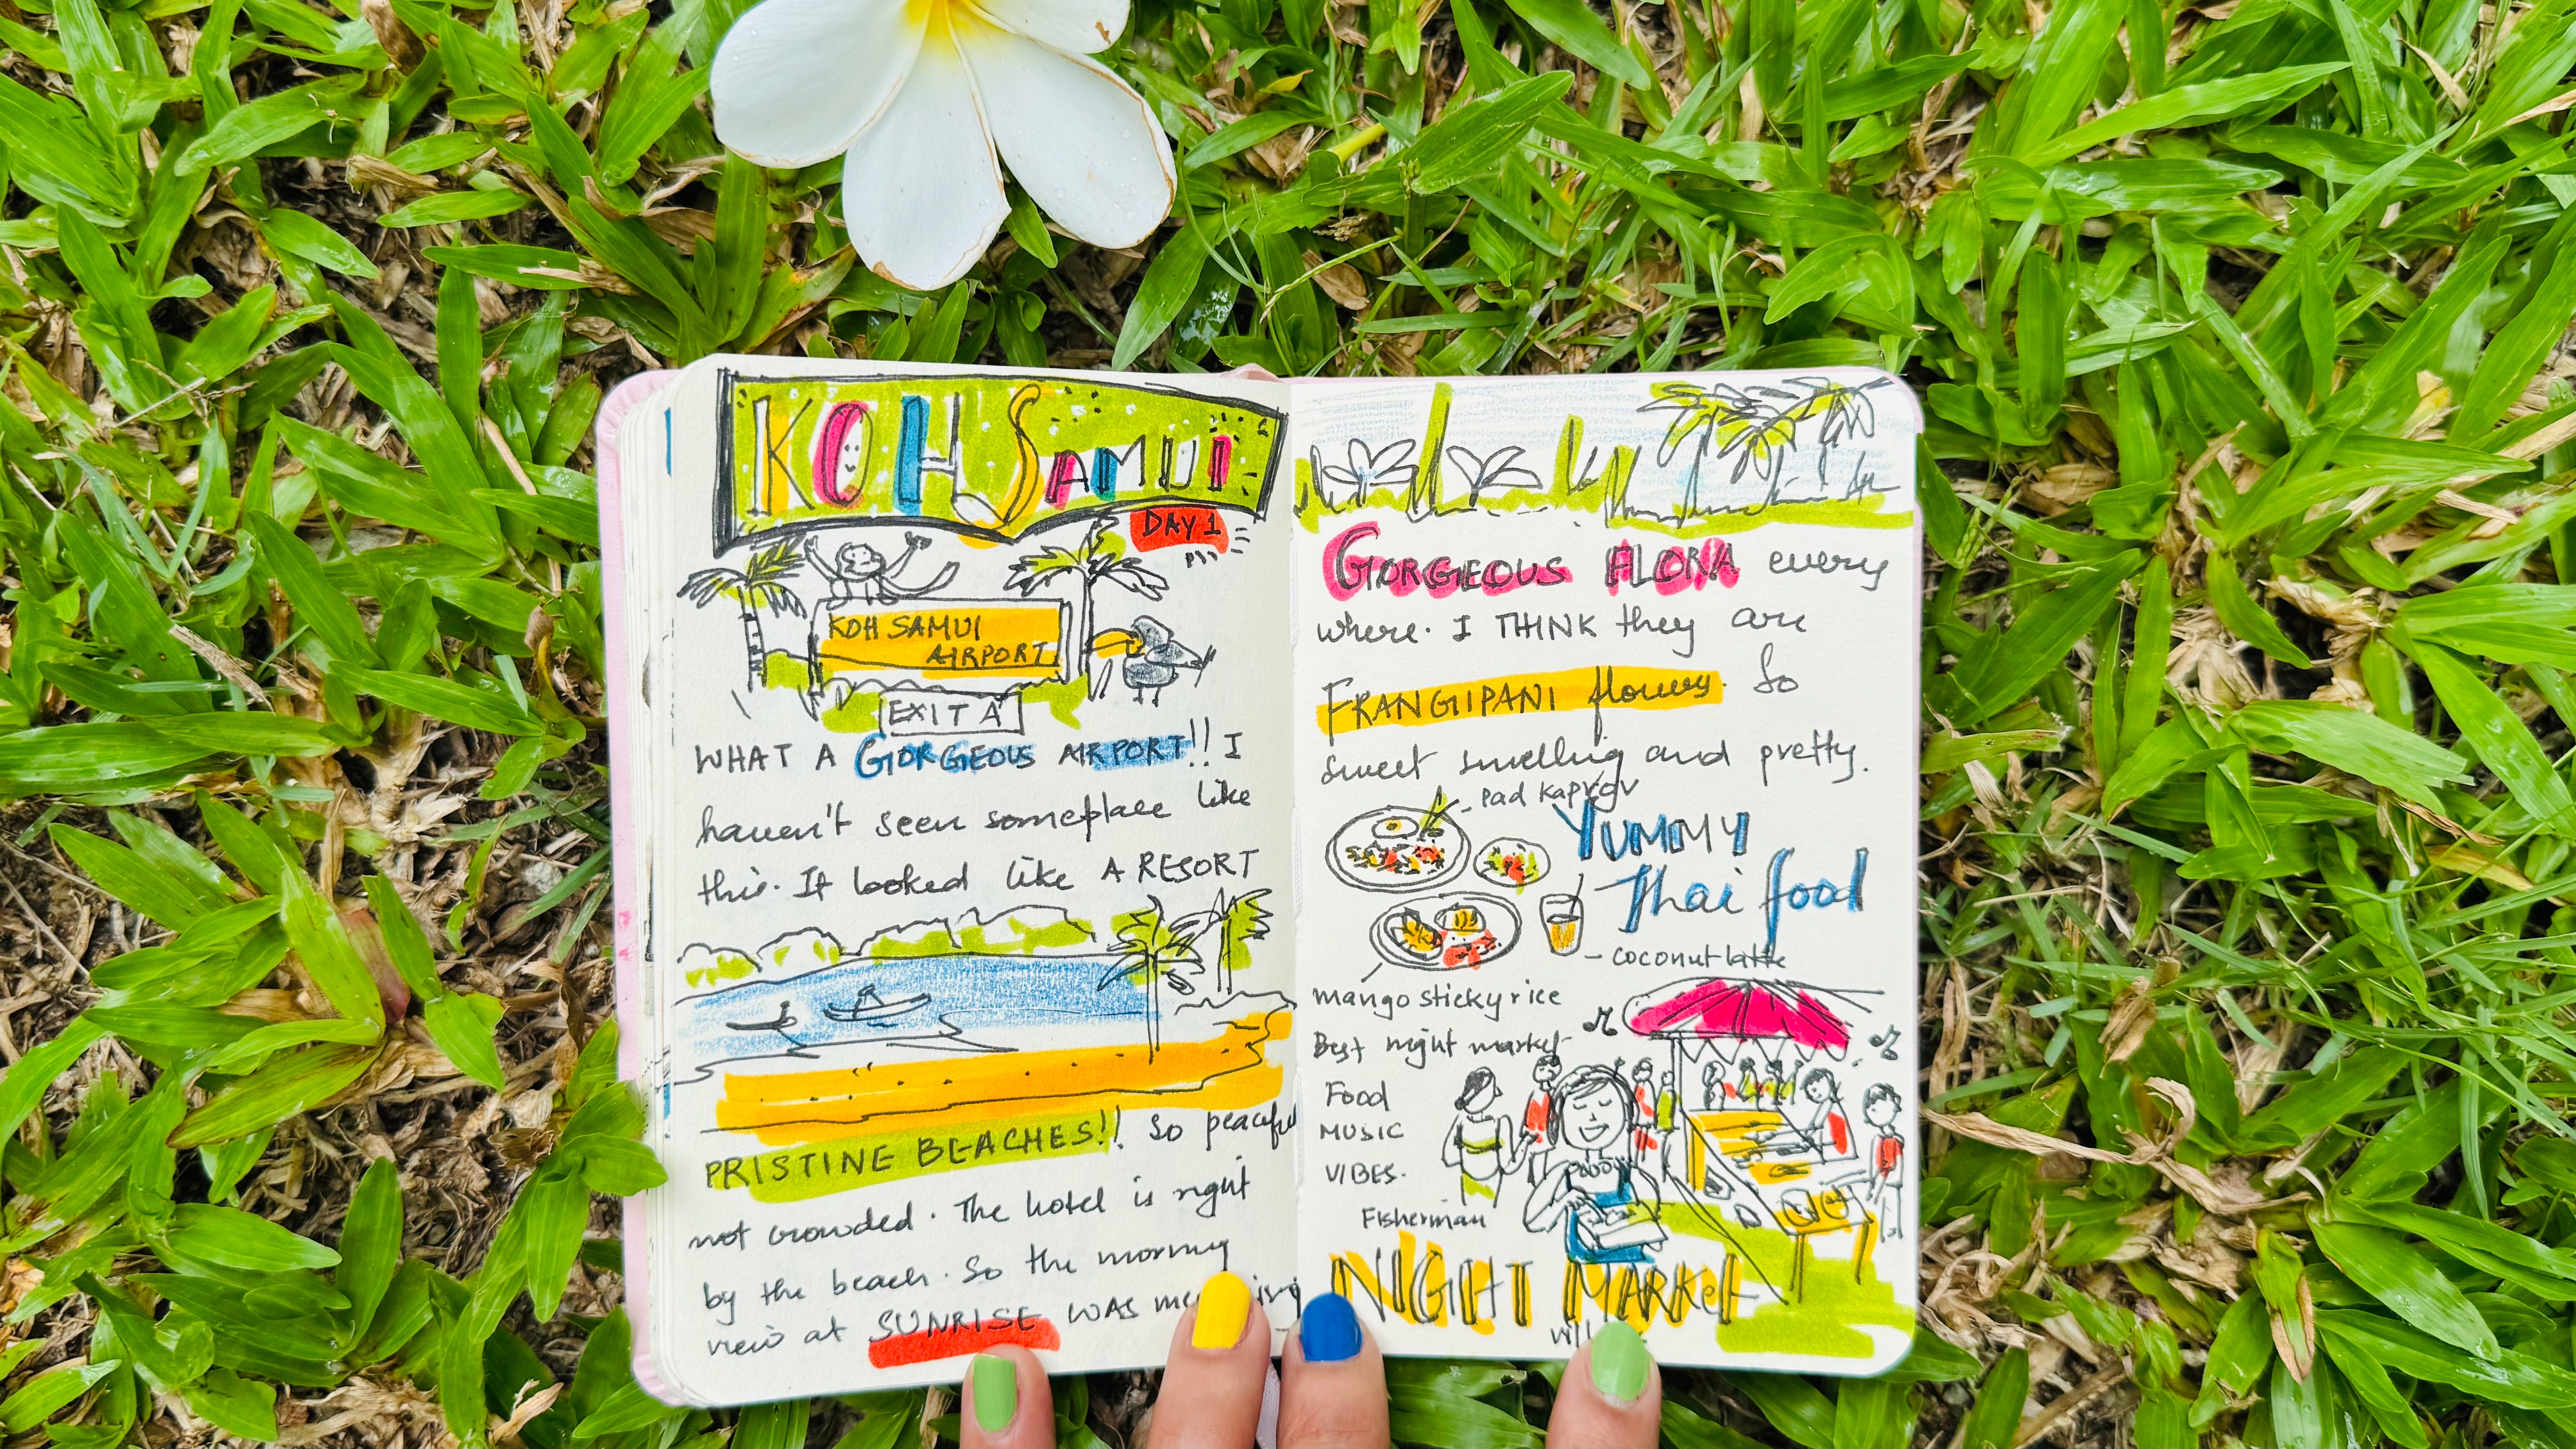 KOH SAMUI
DAY 1
KOH SAMUI
AIRPORT
EXIT A
WHAT A GORGEOUS AIRPORT!! I
haven't seen someplace like
this. It looked like A RESORT
PRISTINE BEACHES!! So peaceful
not crowded. The hotel is right
by the beach. So the morning
view at SUNRISE WAS
GORGEOUS FLORA every
where. I THINK they are
FRANGIPANI flowers. So
sweet smelling and pretty.
Pad Kaprov
YUMMY
Thai food
coconut latte
mango sticky rice
Best night market
Food
MUSIC
VIBES.
Fisherman
NIGHT MARKET